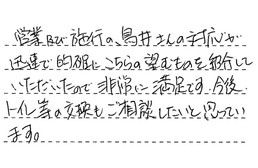 営業及び施行の、鳥井さんの対応が
迅速で的確にこちらの望むものを紹介して
いただいたので非常に満足です。今後
トイレ等の交換もご相談したいと思ってい
ます。